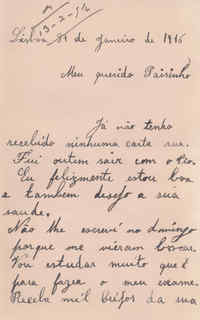 13-2-52
Lisboa 31 de Janeiro de 1915
Meu querido Paisinho
Já não tenho
recebido nenhuma carta sua.
Fui ontem sair com o
Eu felizmente estou boa
e tambem desejo a sua
saude.
Não lhe escrevi no domingo
porque me vieram buscar.
Vou estudar muito que é
para fazer o meu exame.
Receba mil beijos da sua